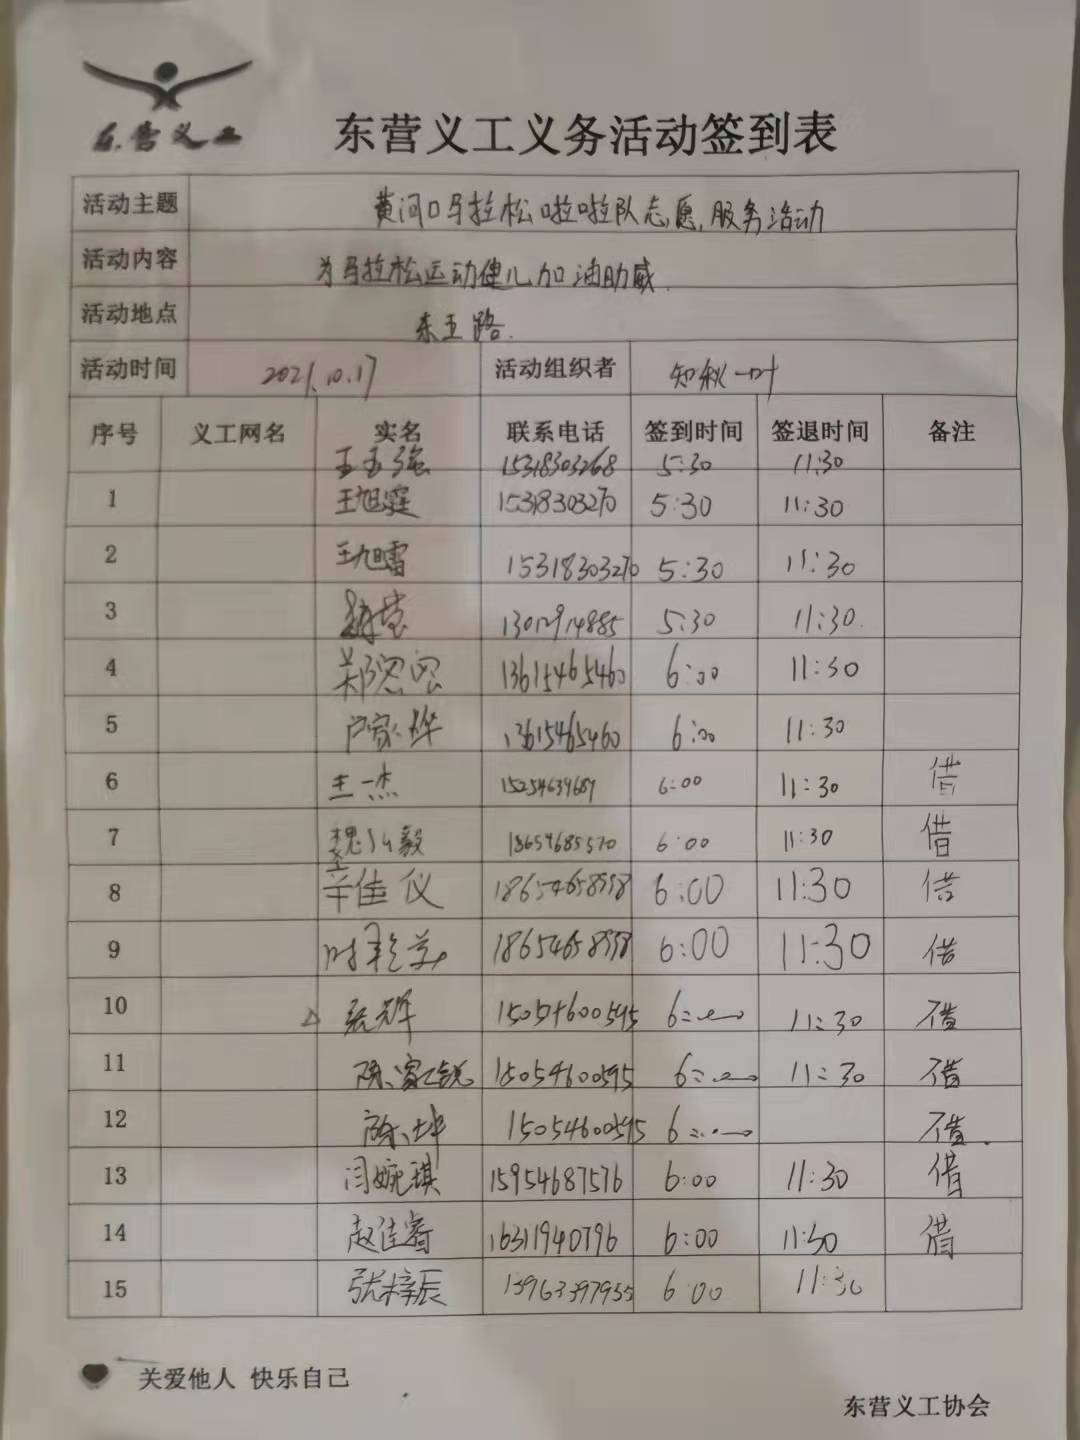 东营义工
东营义工义务活动签到表
活动主题 黄河口马拉松啦啦队志愿服务活动
活动内容 为马拉松运动健儿加油助威.
活动地点 东五路.
活动时间 2021.10.17 活动组织者 知秋一叶
序号 义工网名 实名 联系电话 签到时间 签退时间 备注
王玉强 15318303268 5:30 11:30
1 王旭霆 15318303270 5:30 11:30
2 王旭雷 15318303270 5:30 11:30
3 5:30 11:30
4 郑恩容 13615465460 6:00 11:30
5 13615465460 6:00 11:30
6 王一杰 6:00 11:30 借
7 魏弘毅 18654685570 6:00 11:30 借
8 辛佳仪 18654658998 6:00 11:30 借
9 18654658998 6:00 11:30 借
10 张辉 15054600595 6:00 11:30 借
11 陈家锐 15054600595 6:00 11:30 借
12 陈坤 15054600595 6:00 借.
13 闫婉琪 15954687576 6:00 11:30 借
14 赵佳睿 16311940796 6:00 11:30 借
15 张梓辰 13963397955 6:00 11:30
关爱他人 快乐自己
东营义工协会